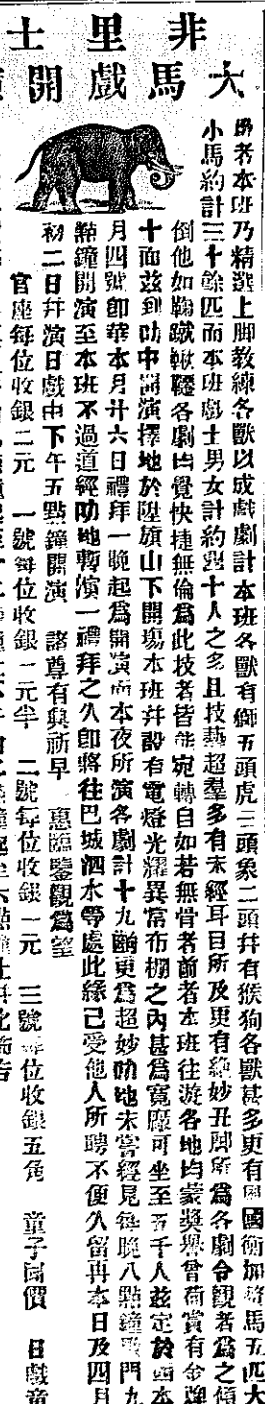 非里士
大馬戲開
啓者本班乃精選上脚教練各獸以成戲劇計本班各獸有獅五頭虎三頭象二頭幷有猴狗各獸甚多更有國衛加馬五匹大
小馬約計三十餘匹而本班戲士男女計約十人之多且技藝超羣多有未經耳目所及更有絶妙丑脚所爲各劇令觀者爲之傾
倒他如鞠蹴鞦韆各劇均覺快捷無倫爲此技者皆能宛轉自如若無骨者前者本班往游各地均蒙奬譽曾荷賞有金牌
十面茲到叻中開演擇地於陞旗山下開塲本班幷設有電燈光耀異常布棚之內甚爲寬廠可坐至五千人茲定於西本
月四號卽華本月廿六日禮拜一晚起爲開演而本夜所演各劇計十九齣更爲超妙叻地未嘗經見每晚八點鐘開門九
點鐘開演至本班不過道經叻地暫演一禮拜之久卽將往巴城泗水等處此緣已受他人所聘不便久留再本日及四月
初二日幷演日戲由下午五點鐘開演 諸尊有興祈早 惠臨鑒觀爲望
官座每位收銀三元 一號每位收銀二元半 二號每位收銀一元 三號每位收銀五角 童子減價 日戲童